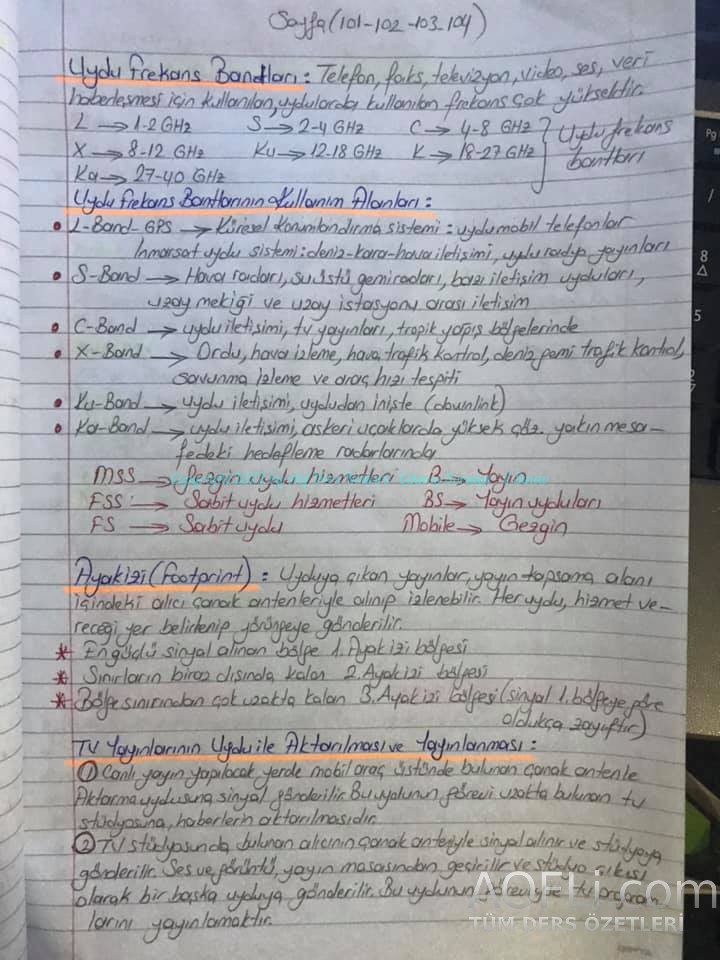 Sayfa (101-102-103-104)
Uydu Frekans Bantları: Telefon, faks, televizyon, video, ses, veri
haberleşmesi için kullanılan, uydularda kullanılan frekans çok yüksektir.
L → 1-2 GHz S → 2-4 GHz C → 4-8 GHz } Uydu frekans
X → 8-12 GHz Ku → 12-18 GHz K → 18-27 GHz bantları
Ka → 27-40 GHz
Uydu Frekans Bantlarının Kullanım Alanları:
• L-Band-GPS → Küresel konumlandırma sistemi: uydu mobil telefonlar
Inmarsat uydu sistemi: deniz-kara-hava iletişimi, uydu radyo yayınları
• S-Band → Hava radarı, su üstü gemi radarı, bazı iletişim uyduları,
uzay mekiği ve uzay istasyonu arası iletişim
• C-Band → uydu iletişimi, tv yayınları, tropik yağış bölgelerinde
• X-Band → Ordu, hava izleme, hava trafik kontrol, deniz gemi trafik kontrol,
savunma izleme ve araç hızı tespiti
• Ku-Band → uydu iletişimi, uydudan inişte (downlink)
• Ka-Band → uydu iletişimi, askeri uçaklarda yüksek çöz. yakın mesa-
fedeki hedefleme radarlarında
MSS → Gezgin uydu hizmetleri B → Yayın
FSS → Sabit uydu hizmetleri BS → Yayın uyduları
FS → Sabit uydu Mobile → Gezgin
Ayakizi (Footprint): Uyduya çıkan yayınlar, yayın kapsama alanı
içindeki alıcı çanak antenleriyle alınıp izlenebilir. Her uydu, hizmet ve-
receği yer belirlenip yörüngeye gönderilir.
* En güçlü sinyal alınan bölge 1. Ayakizi bölgesi
* Sınırların biraz dışında kalan 2. Ayakizi bölgesi
* Bölge sınırından çok uzakta kalan 3. Ayakizi bölgesi (sinyal 1. bölgeye göre
oldukça zayıftır)
TV Yayınlarının Uydu ile Aktarılması ve Yayınlanması:
① Canlı yayın yapılacak yerde mobil araç üstünde bulunan çanak antenle
Aktarma uydusuna sinyal gönderilir. Bu uydunun görevi uzakta bulunan tv
stüdyosuna, haberlerin aktarılmasıdır.
② TV stüdyosunda bulunan alıcının çanak anteniyle sinyal alınır ve stüdyoya
gönderilir. Ses ve görüntü, yayın masasından geçirilir ve stüdyo çıkışı
olarak bir başka uyduya gönderilir. Bu uydunun görevi ise tv program
larını yayınlamaktır.
AOFLi.com
TÜM DERS ÖZETLERİ
Pg
8
5